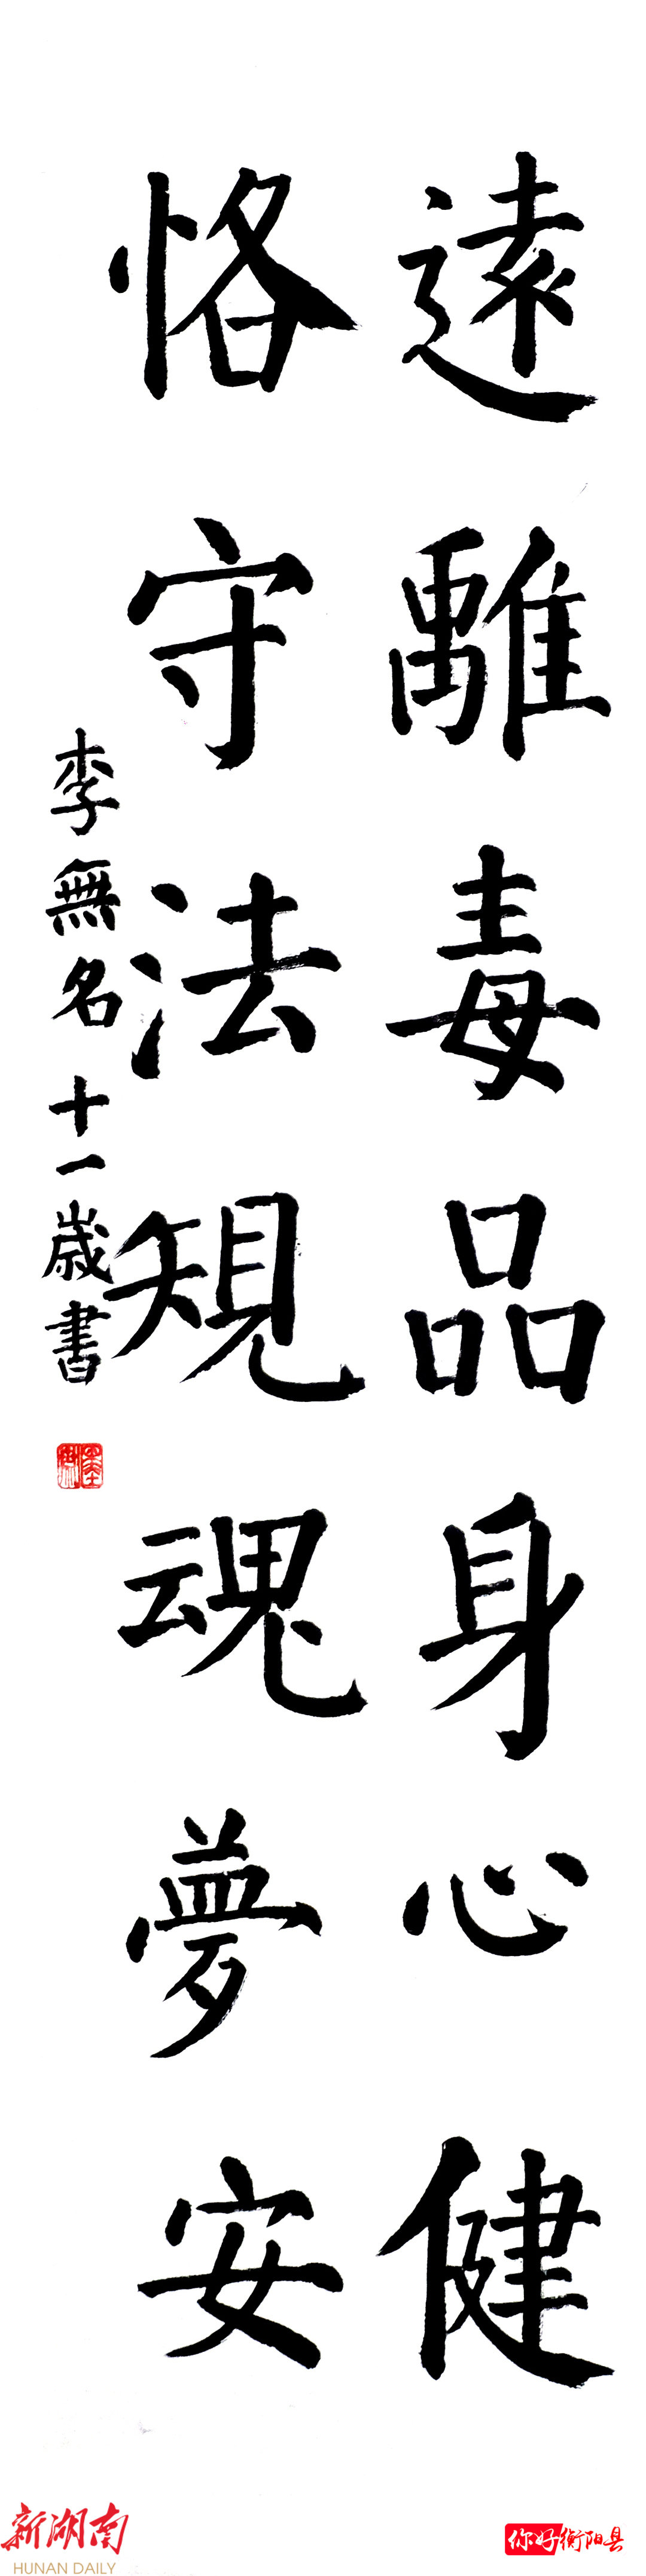 遠離毒品身心健
恪守法規魂夢安
李無名十一歲書
新湖南
HUNAN DAILY
你好衡阳县